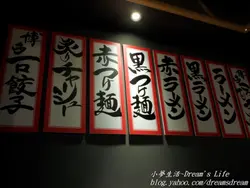 博多一口餃子
炙りチャーシュー
赤つけ麺
黒つけ麺
赤ラーメン
黒ラーメン
ラーメン
小夢生活-Dream's Life
blog.yahoo.com/dreamsdream